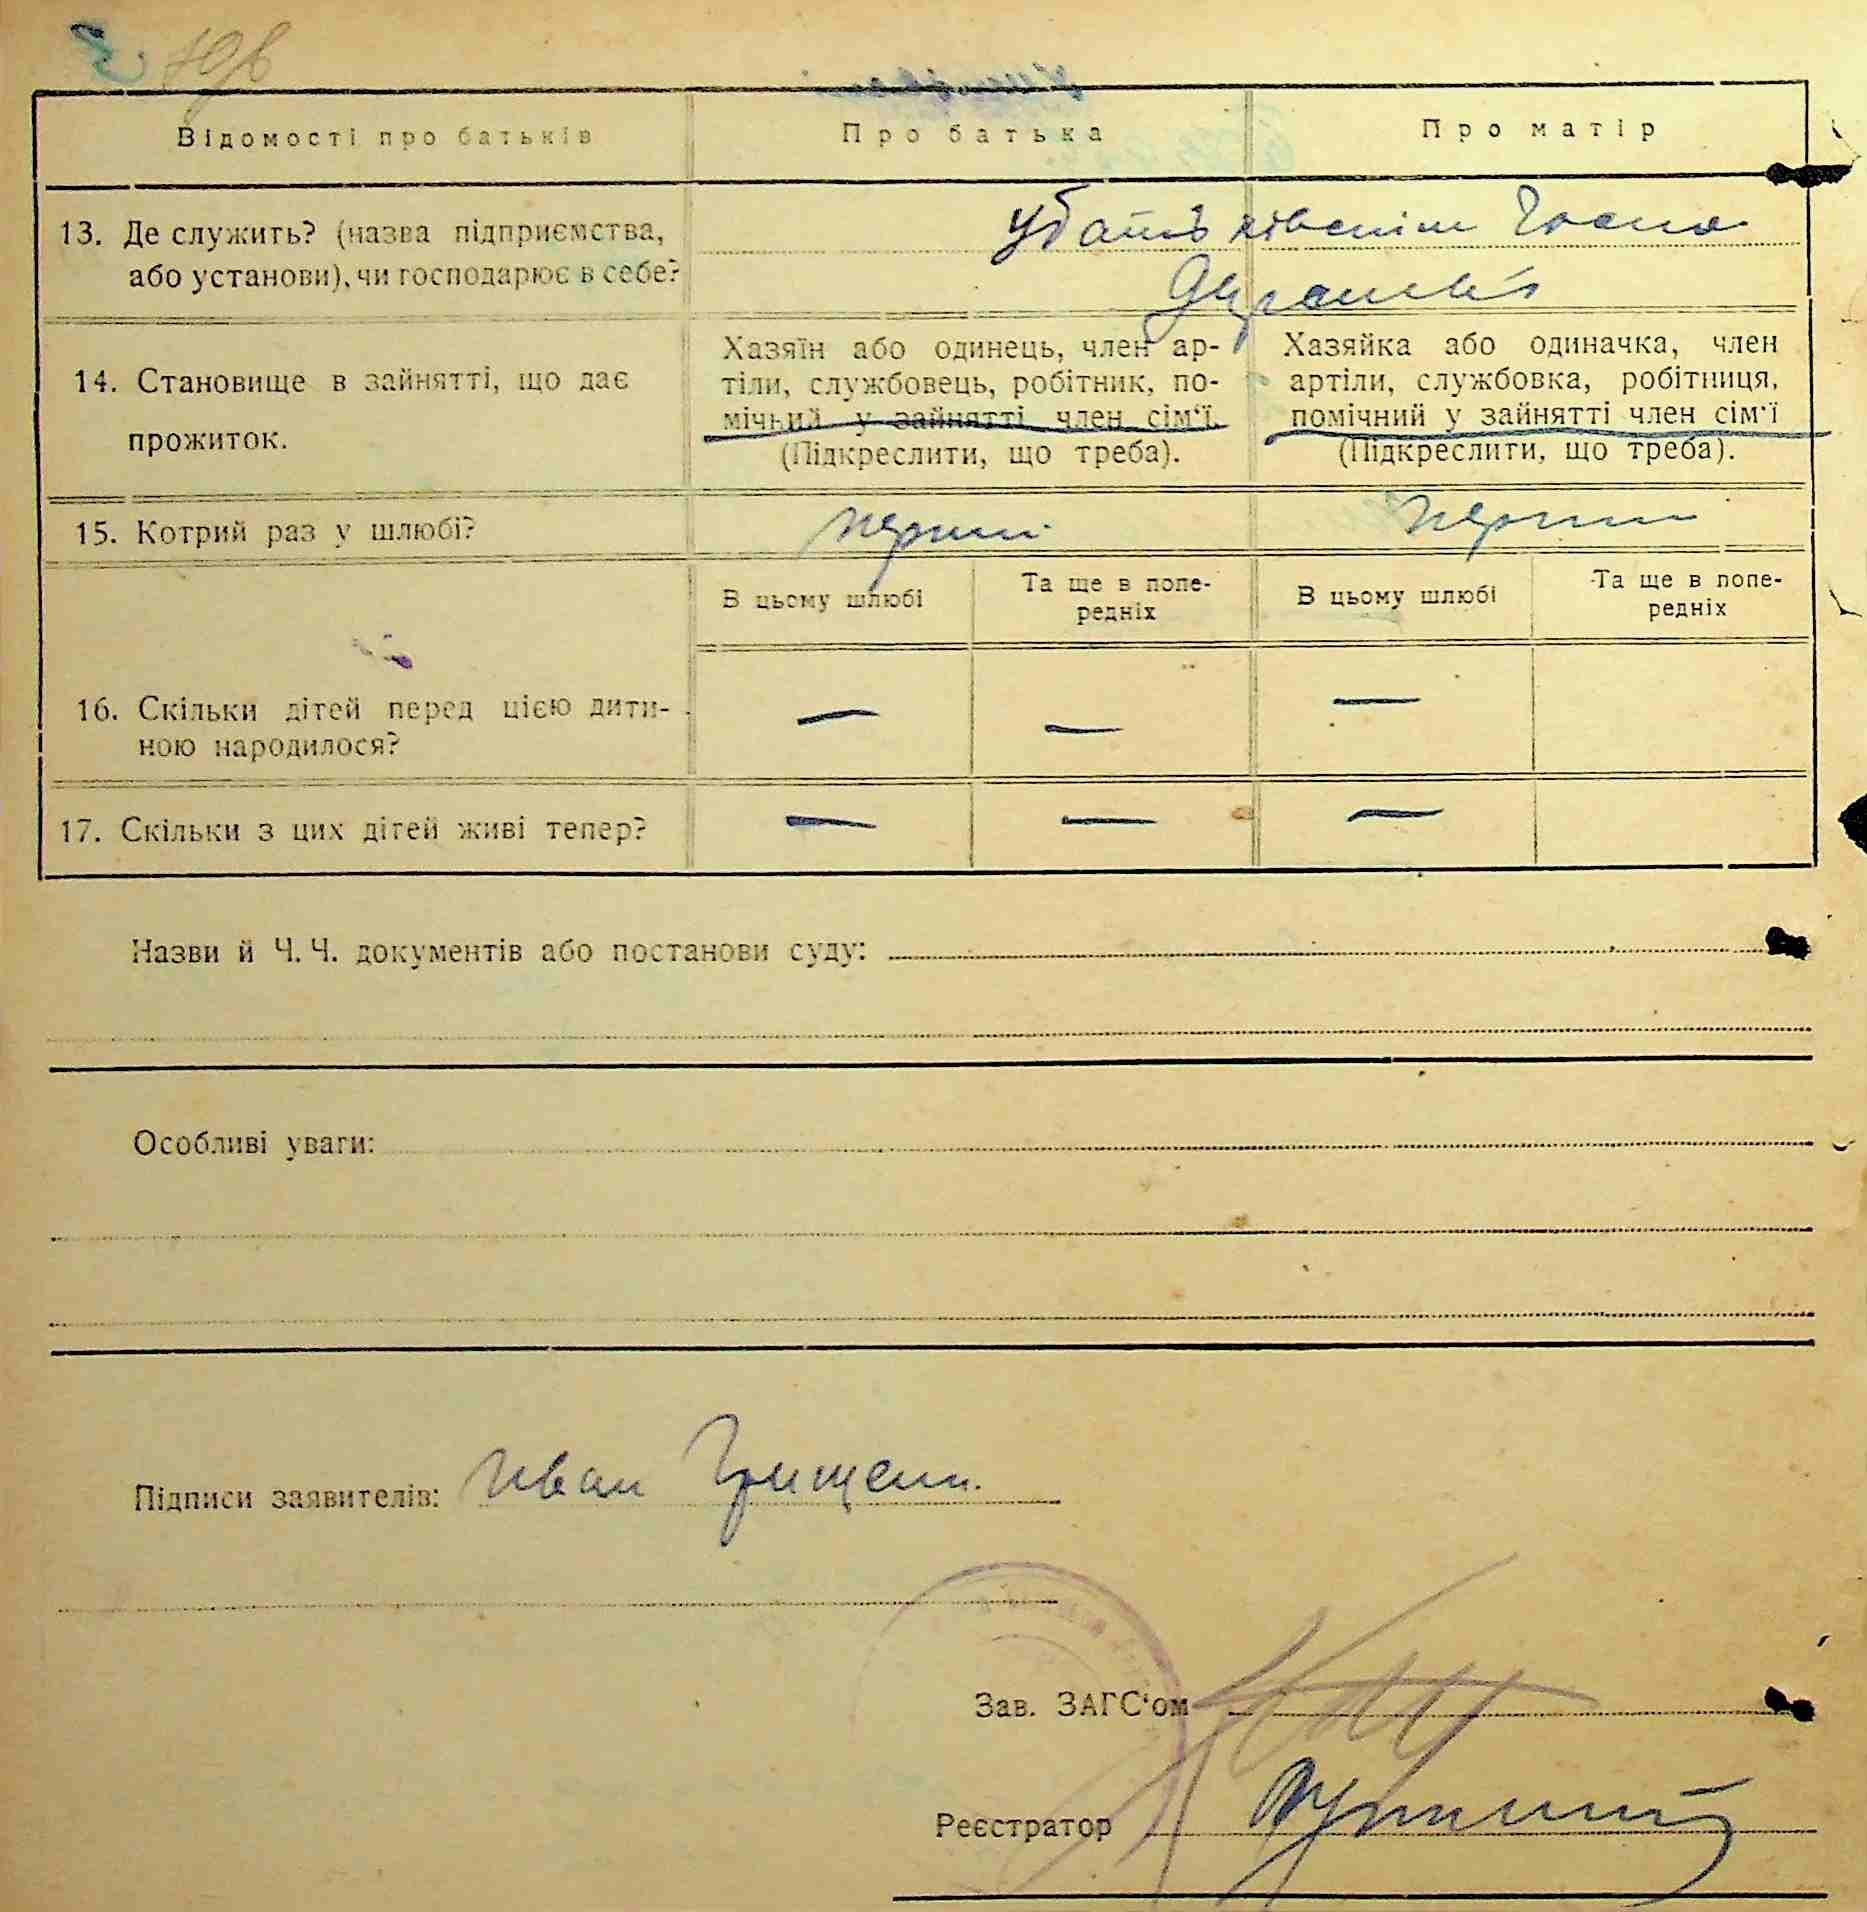 Відомості про батьків
Про батька
Про матір
13. Де служить? (назва підприємства,
або установи), чи господарює в себе?
14. Становище в зайнятті, що дає
прожиток.
Хазяїн або одинець, член ар-
тіли, службовець, робітник, по-
мічний у зайнятті член сім‘ї.
(Підкреслити, що треба).
Хазяйка або одиначка, член
артіли, службовка, робітниця,
помічний у зайнятті член сім‘ї
(Підкреслити, що треба).
15. Котрий раз у шлюбі?
В цьому шлюбі
Та ще в попе-
редніх
В цьому шлюбі
Та ще в попе-
редніх
16. Скільки дітей перед цією дити-
ною народилося?
— — —
17. Скільки з цих дітей живі тепер?
— — —
Назви й Ч. Ч. документів або постанови суду:
Особливі уваги:
Підписи заявителів: Иван
Зав. ЗАГС‘ом
Реєстратор